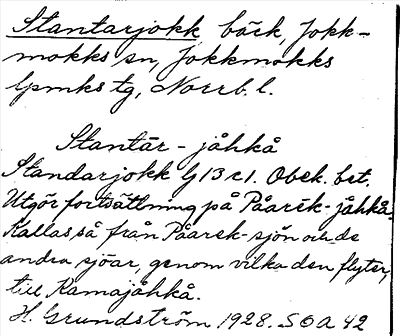 Stantarjokk bäck, Jokk-
mokks sn, Jokkmokks
lpmks tg, Norrb. l.
Stantār - jåhkå
Standarjokk G13 c1. Obek. bet.
Utgör fortsättning på Påarēk-jåhkå.
Kallas så från Påarēk-sjön och de
andra sjöar, genom vilka den flyter,
till Kamajåhkå.
H. Grundström 1928. SOA 42